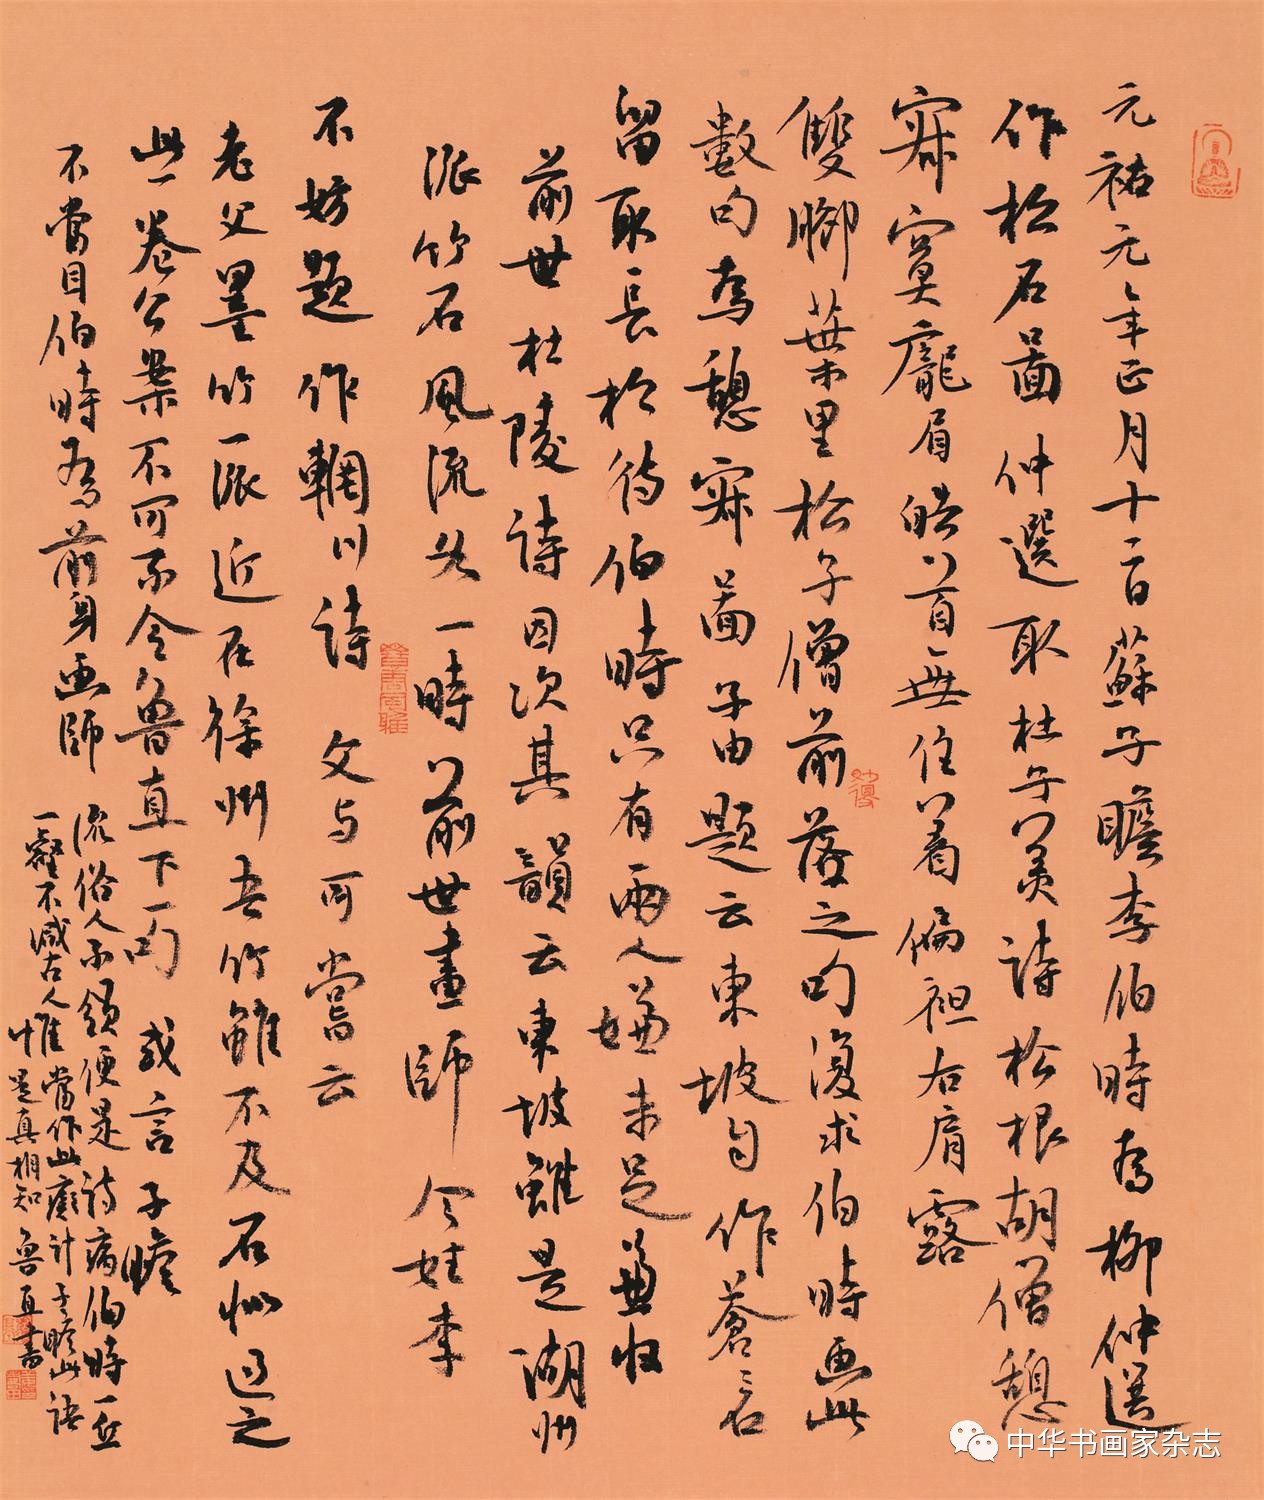 元祐元年正月十二日蘇子瞻李伯時為柳仲選
作松石圖仲選取杜子美詩松根胡僧憩
寂寞龐眉皓首無住著偏袒右肩露
雙腳葉里松子僧前落之句復求伯時畫此
數句為憩寂圖子由題云東坡自作蒼蒼石
留取長松待伯時只有兩人嫌未足兼收
前世杜陵詩因次其韻云東坡雖是湖州
派竹石風流各一時前世畫師今姓李
不妨題作輞川詩 文與可嘗云
老父墨竹一派近在徐州吾竹雖不及石似過之
此一卷公案不可不令魯直下一句 或言子瞻
不當目伯時為前身畫師
流俗人不領便是詩病伯時一丘
一壑不減古人惟當作此癡計子瞻此語
是真相知 魯直書
中华书画家杂志